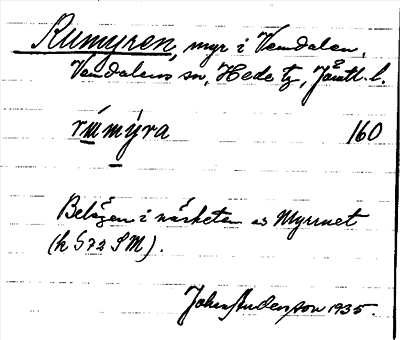 Rumyren, myr i Vemdalen,
Vemdalens sn, Hede tg, Jämtl. l.
rúmýra 160
Belägen i närheten av Myrrnet
(k 572 SM).
John Andersson 1935.